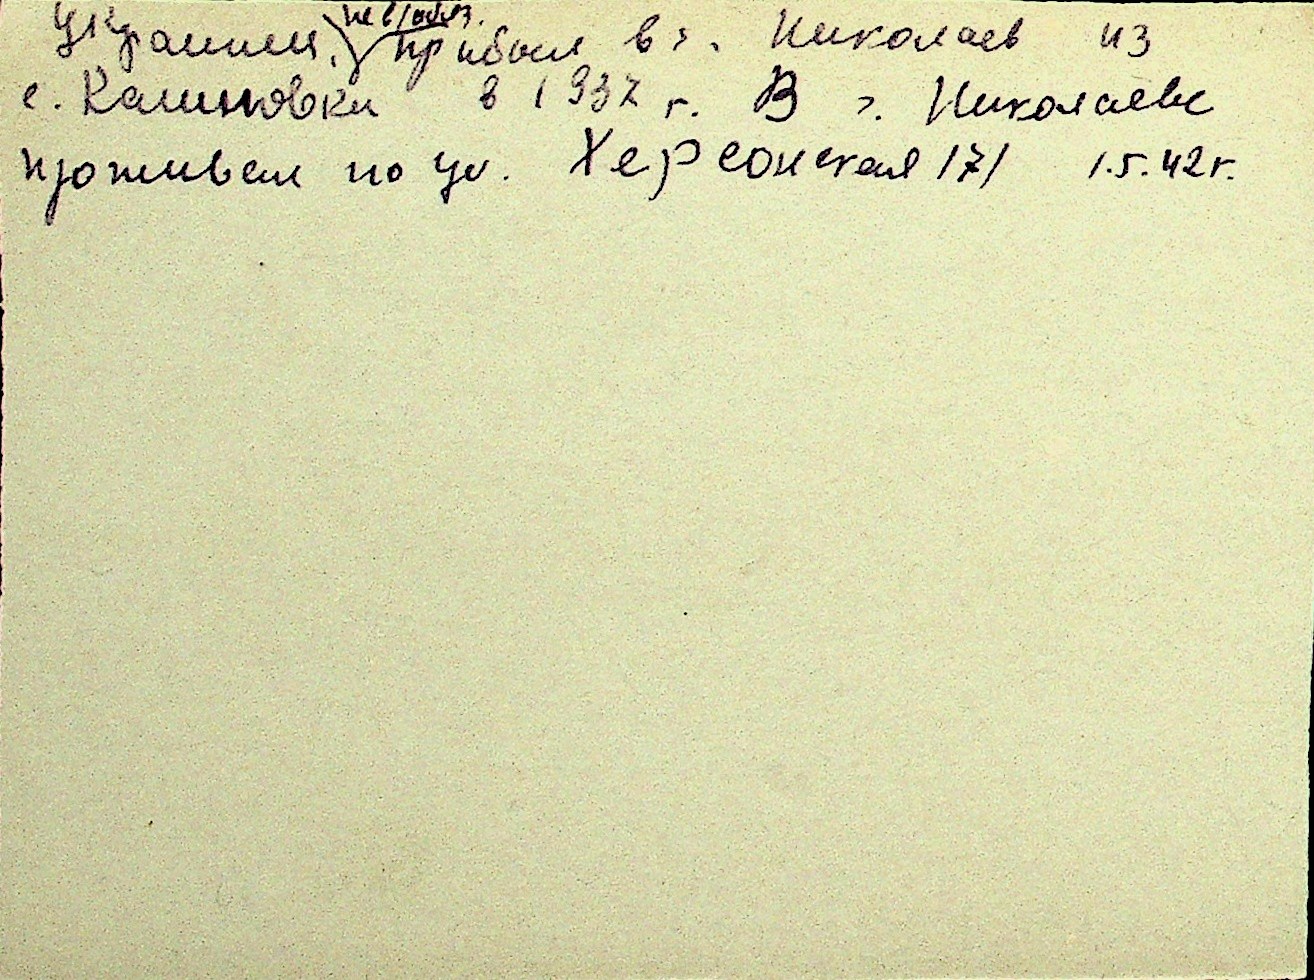 Украинец, не в/обяз. прибыл в г. Николаев из
с. Калиновки в 1937 г. В г. Николаеве
проживал по ул. Херсонская 171 1.5.42 г.